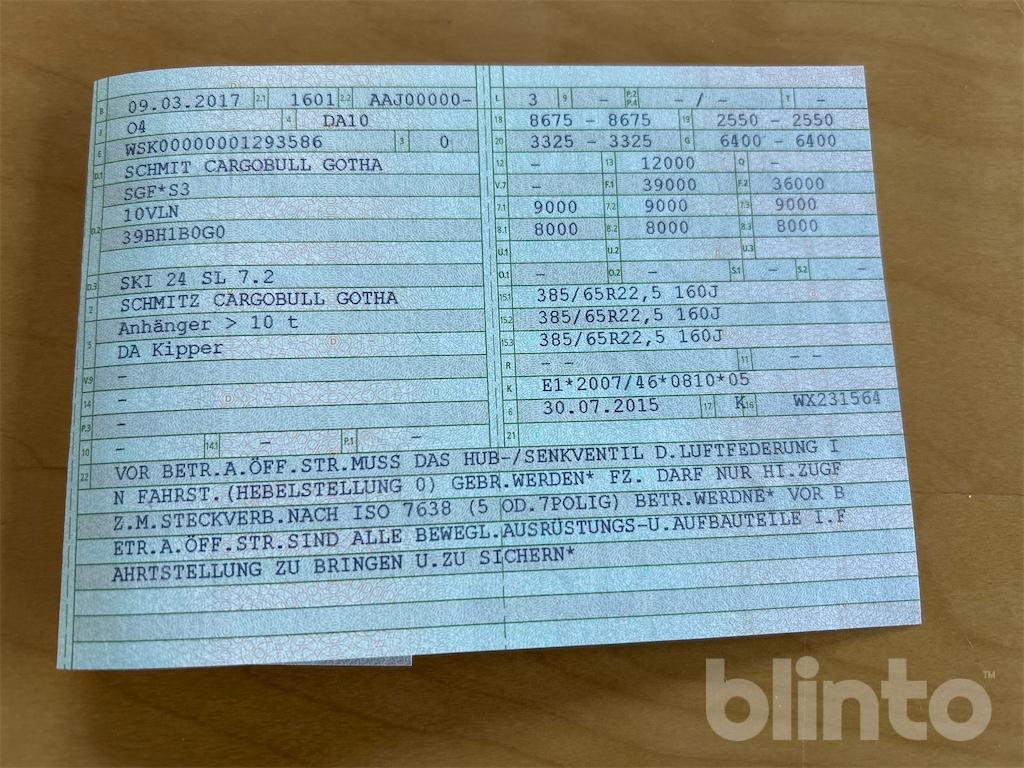 B 09.03.2017 2.1 1601 2.2 AAJ00000-
J O4 4 DA10
E WSK00000001293586 3 0
D.1 SCHMIT CARGOBULL GOTHA
SGF*S3
D.2 10VLN
39BH1B0G0
D.3 SKI 24 SL 7.2
2 SCHMITZ CARGOBULL GOTHA
5 Anhänger > 10 t
DA Kipper
V.9 –
14 –
P.3 –
10 14.1 – P.1 –
L 3 9 – P.2 P.4 – / – T –
18 8675 – 8675 19 2550 – 2550
20 3325 – 3325 G 6400 – 6400
12 – 13 12000 Q –
V.7 – F.1 39000 F.2 36000
7.1 9000 7.2 9000 7.3 9000
8.1 8000 8.2 8000 8.3 8000
U.1 U.2 U.3
O.1 – O.2 – S.1 – S.2 –
15.1 385/65R22,5 160J
15.2 385/65R22,5 160J
15.3 385/65R22,5 160J
R – – 11 – –
K E1*2007/46*0810*05
6 30.07.2015 17 K 16 WX231564
21
22 VOR BETR.A.ÖFF.STR.MUSS DAS HUB-/SENKVENTIL D.LUFTFEDERUNG I
N FAHRST.(HEBELSTELLUNG 0) GEBR.WERDEN* FZ. DARF NUR HI.ZUGF
Z.M.STECKVERB.NACH ISO 7638 (5 OD.7POLIG) BETR.WERDNE* VOR B
ETR.A.ÖFF.STR.SIND ALLE BEWEGL.AUSRÜSTUNGS-U.AUFBAUTEILE I.F
AHRTSTELLUNG ZU BRINGEN U.ZU SICHERN*
blinto™